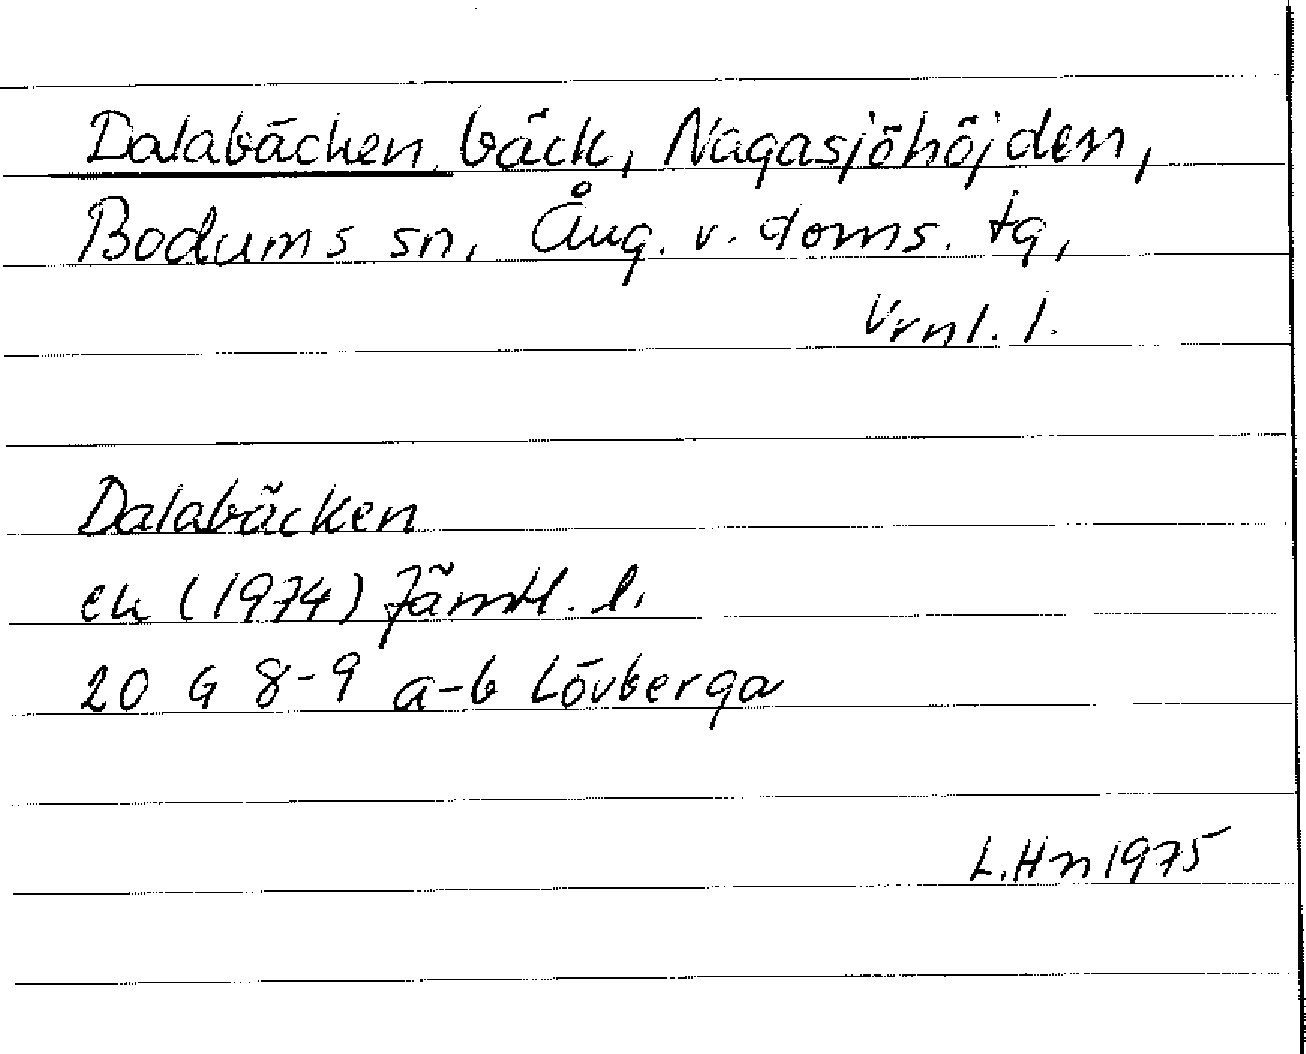 Dalabäcken, bäck, Nagasjöhöjden,
Bodums sn, Ång. v. doms. tg,
Vrnl. l.
Dalabäcken
ek (1974) Jämtl. l.
20 G 8-9 a-b Lövberga
L.Hn 1975